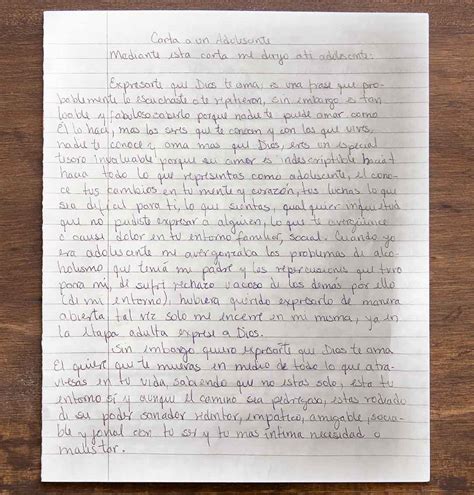 Carta a un Adolescente
Mediante esta carta me dirijo a ti adolescente:
Expresarte que Dios te ama, es una frase que pro-
bablemente lo escuchaste o te repitieron, sin embargo es tan
loable y fabuloso saberlo porque nadie te puede amar como
El lo hace, mas los seres que te conocen y con los que vives,
nadie te conoce y ama mas que Dios, eres un especial
tesoro invaluable porque su amor es indescriptible hacia ti
hacia todo lo que representas como adolescente, el cono-
ce tus cambios en tu mente y corazón, tus luchas lo que
sea dificil para ti, lo que sientas, qualquier inquietud
que no pudiste expresar a alguien, lo que te avergüence
o cause dolor en tu entorno familiar, social. Cuando yo
era adolescente me avergonzaba los problemas de alco-
holismo que tenia mi padre y las repercusiones que tuvo
para mi, de sufrir rechazo y acoso de los demas por ello
(de mi entorno), hubiera querido expresarlo de manera
abierta tal vez solo me encerre en mi misma, ya en
la etapa adulta exprese a Dios.
Sin embargo quiero expresarte que Dios te ama
El quiere que te muevas en medio de todo lo que atra-
viesas en tu vida, sabiendo que no estas solo, esta tu
entorno si y aunque el camino sea pedregoso, estas rodeado
de su poder sanador redentor, empático, amigable, socia-
ble y jovial con tu ser y tu mas intima necesidad o
malestar.